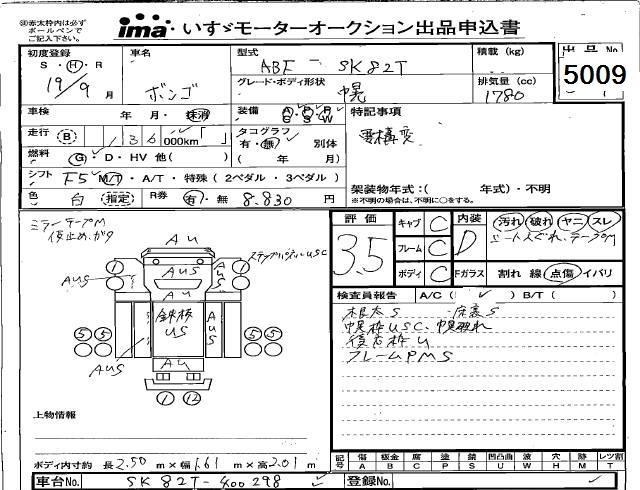 ㊟赤太枠内は必ず
ボールペンで
ご記入下さい。
ima いすゞモーターオークション出品申込書
初度登録
S・H・R
19/9月
車名
ボンゴ
型式
ABF-SK82T
積載(kg)
出品No
5009
グレード・ボディ形状
幌
排気量(cc)
1780
車検 年 月・抹消
装備 A P P A
G S S W
特記事項
走行 B 36 000km「 」
タコグラフ
有・無 別体
( 年 月)
燃料 G・D・HV 他( )
シフト F5 M/T・A/T・特殊(2ペダル・3ペダル)
架装物年式:( 年式)・不明
※不明の場合は、不明に○をする。
色 白(指定) R券 有・無 8.830円
評価
3.5
キャブ C
フレーム C
ボディ C
内装 D
汚れ 破れ ヤニ スレ
Fガラス 割れ 線 点傷 イバリ
検査員報告 A/C( ✓ ) B/T( )
根太S 床裏S
フレームPMS
ミラーテープM
AU
AUS
AUS
AUS
AU
US
AUS
AU
AUS
1
1
5 5
5 5
1 12
上物情報
ボディ内寸約 長2.50m×幅1.61m×高2.01m
記号 傷A 板金B 腐C 塗P 錆S 凹凸曲U 波W 穴H 跡M レンズ割T
車台No. SK82T-400298
登録No.